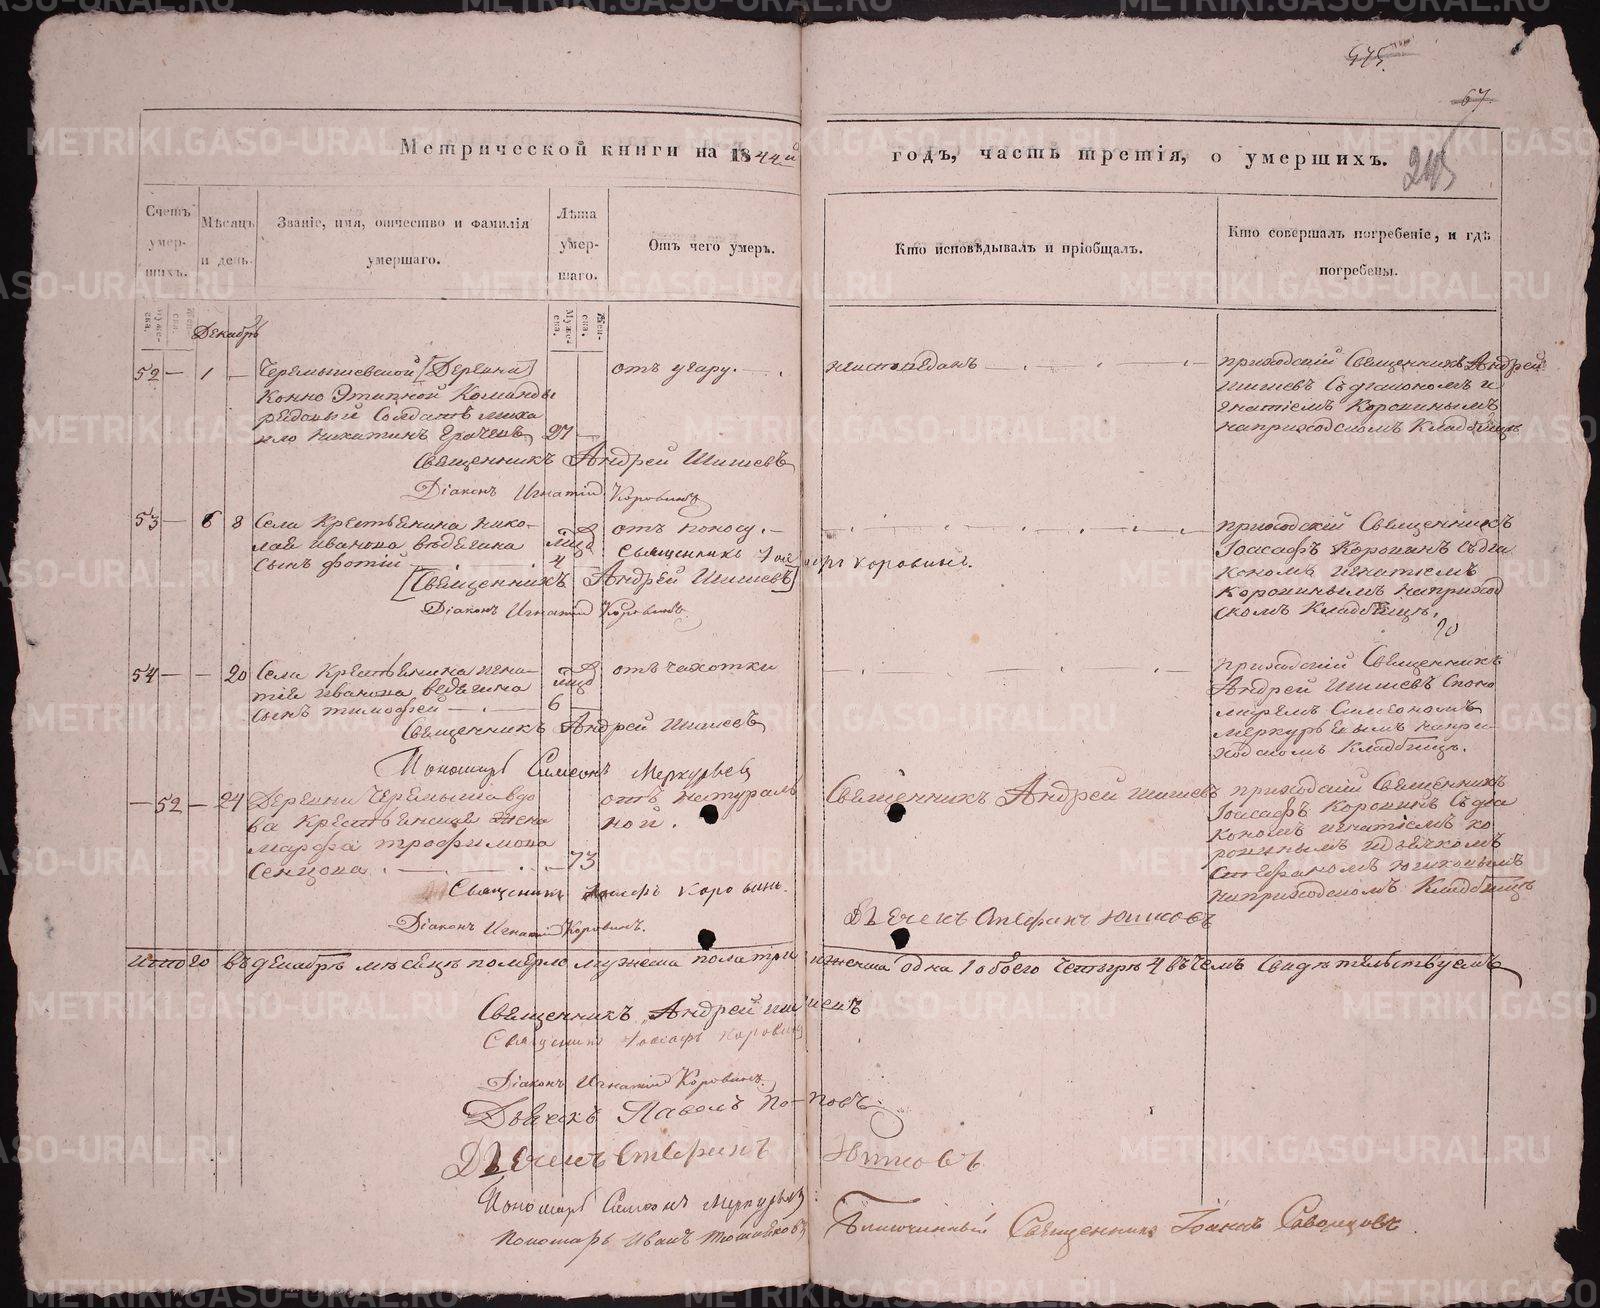 67
Метрической книги на 1844й годъ, часть третія, о умершихъ.
Счетъ умершихъ.
Мѣсяцъ и день.
Званіе, имя, отчество и фамилія умершаго.
Лѣта умершаго.
Отъ чего умеръ.
Кто исповѣдывалъ и пріобщалъ.
Кто совершалъ погребеніе, и гдѣ погребены.
Декабрь
52 — 1 —
Черемышевской [Деревни]
Конно Этапной Команды
рядовый Солдатъ миха
ило Никитинъ 27 —
отъ угару.
неисповеданъ
приходскій Священникъ Андрей
Шишевъ съ діакономъ и
гнатіемъ Коровинымъ
наприходскомъ Кладбищѣ
Священникъ Андрей Шишевъ
Діаконъ Игнатій Коровинъ
53 — 8
Села Крестьянина Нико
лая Иванова
сынъ Фотій
4
отъ поносу.
приходскій Священникъ
Іоасафъ Коровинъ съ діа
кономъ игнатіемъ
Коровинымъ наприход
скомъ Кладбищѣ.
Священникъ Іоасафъ Коровинъ.
[Священникъ Андрей Шишевъ]
Діаконъ Игнатій Коровинъ
54 — — 20
Села Крестьянина игна
тія Иванова
сынъ тимофей
6
отъ чахотки
приходскій Священникъ
Андрей Шишевъ споно
маремъ Симеономъ
меркурьевымъ напри
ходскомъ Кладбищѣ.
Священникъ Андрей Шишевъ
Пономарь Симеонъ Меркурьевъ
— 52 — 24
Деревни Черемыша вдо
ва Крестьянская жена
Марфа трофимова
Сенцова. 73
отъ натураль
ной.
Священникъ Андрей Шишевъ
приходскій Священникъ
Іоасафъ Коровинъ съ діа
кономъ игнатіемъ ко
ровинымъ и дьячкомъ
Стефаномъ
наприходскомъ Кладбищѣ
Священникъ Іоасафъ Коровинъ.
Діаконъ Игнатій Коровинъ.
Дьячекъ Стефанъ
въ декабрѣ мѣсяцѣ померло мужеска пола три женска одна 1 обоего четыре 4 въ чемъ свидѣтельствуемъ
Священникъ Андрей Шишевъ
Священникъ Іоасафъ Коровинъ
Діаконъ Игнатій Коровинъ.
Дьячекъ Павелъ Поповъ.
Дьячекъ Стефанъ
Пономарь Симеонъ Меркурьевъ
Пономарь Иванъ
Благочинный Священникъ Іоаннъ
METRIKI.GASO-URAL.RU